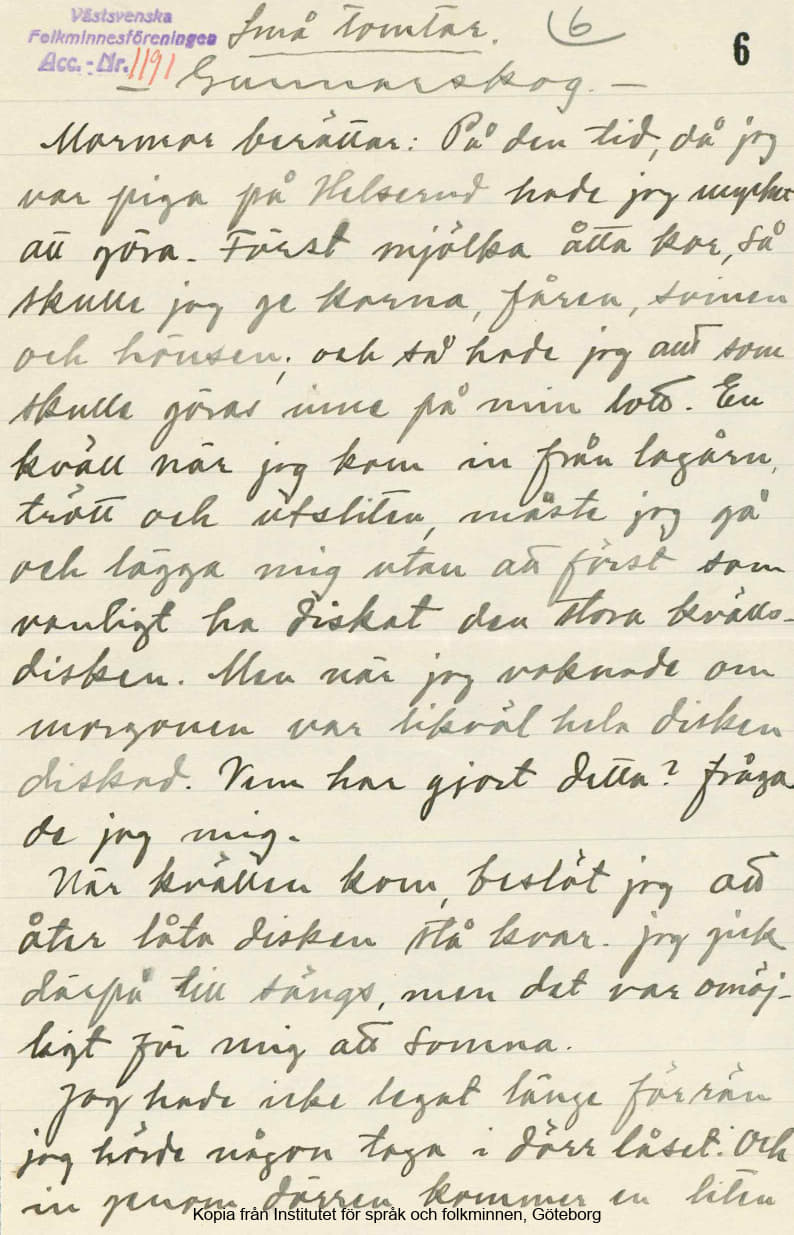 Västsvenska
Folkminnesföreningen
Acc.-Nr. 1191
Små tomtar. 6
6
– Gunnarskog. –
Mormor berättar: På den tid, då jog
var piga på Helserud hade jog mycket
att göra. Först mjölka åtta kor, så
skulle jog ge korna, fåren, svinen
och hönsen; och så hade jog allt som
skulle göras inne på min lott. En
kväll när jog kom in från lagårn,
trött och utsliten, måste jog gå
och lägga mig utan att först som
vanligt ha diskat den stora kvälls-
disken. Men när jog vaknade om
morgonen var likväl hela disken
diskad. Vem har gjort detta? fråga-
de jog mig.
När kvällen kom, beslöt jog att
åter låta disken stå kvar. jog gick
därpå till sängs, men det var omöj-
ligt för mig att somna.
Jog hade icke legat länge förrän
jog hörde någon taga i dörr låset. Och
in genom dörren kommer en liten
Kopia från Institutet för språk och folkminnen, Göteborg